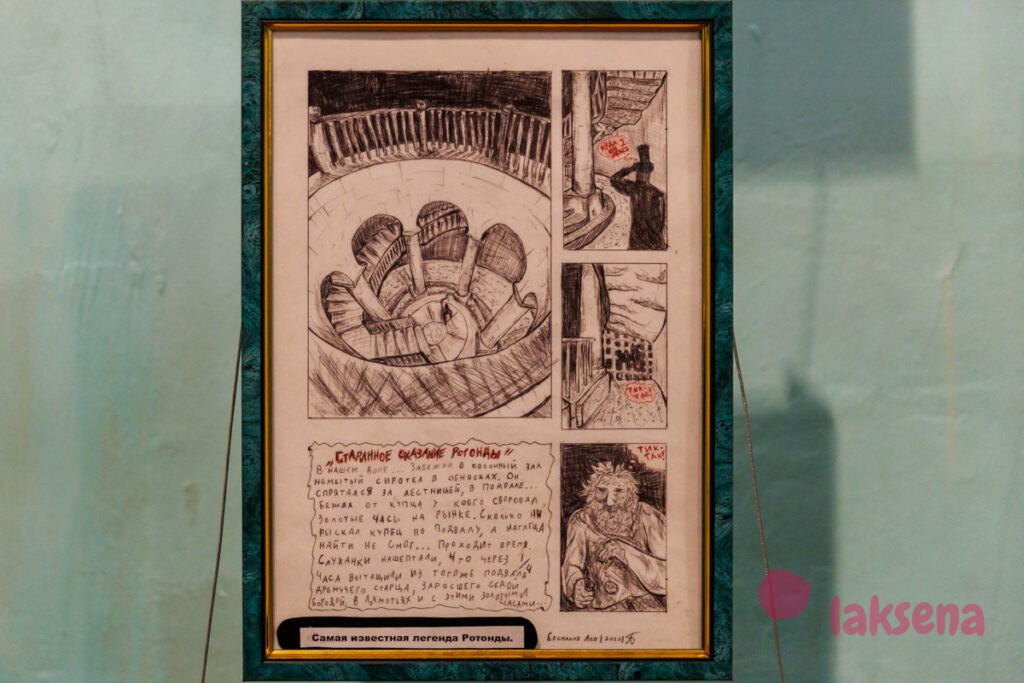 „Старинное сказание Ротонды"
В нашем доме... Забежал в колонный зал
немытый сиротка в обносках. Он
спрятался за лестницей, в подвале...
Бежал от купца у коего своровал
золотые часы на рынке. Сколько ни
рыскал купец по подвалу, а наглеца
найти не смог... Проходит время.
Служанки нашептали, что через 1/4
часа вытащили из того же подвала
дремучего старца, заросшего седой
бородой, в лохмотьях и с этими золотыми
часами...
Самая известная легенда Ротонды.
ТИК-
ТАК!
ТИК-
ТАК!
laksena